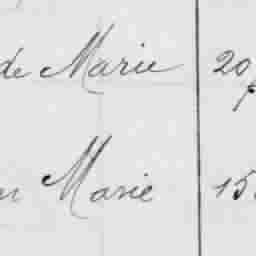 de Marie 20
Marie 15